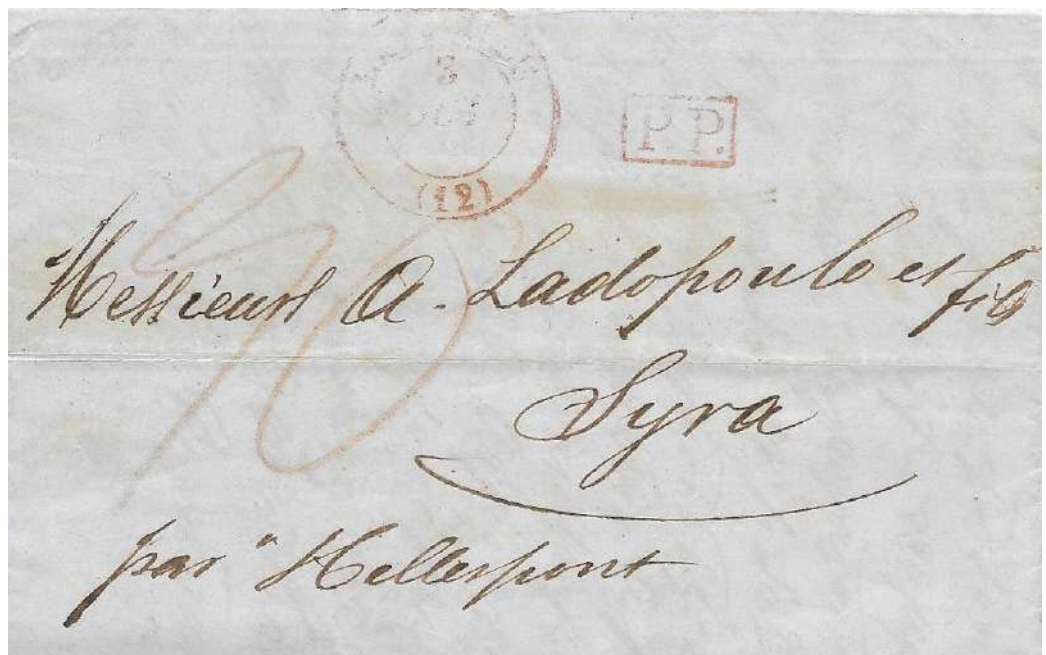 3
P.P.
(12)
Messieurs A. Ladopoulo et fils
Syra
par "Hellespont